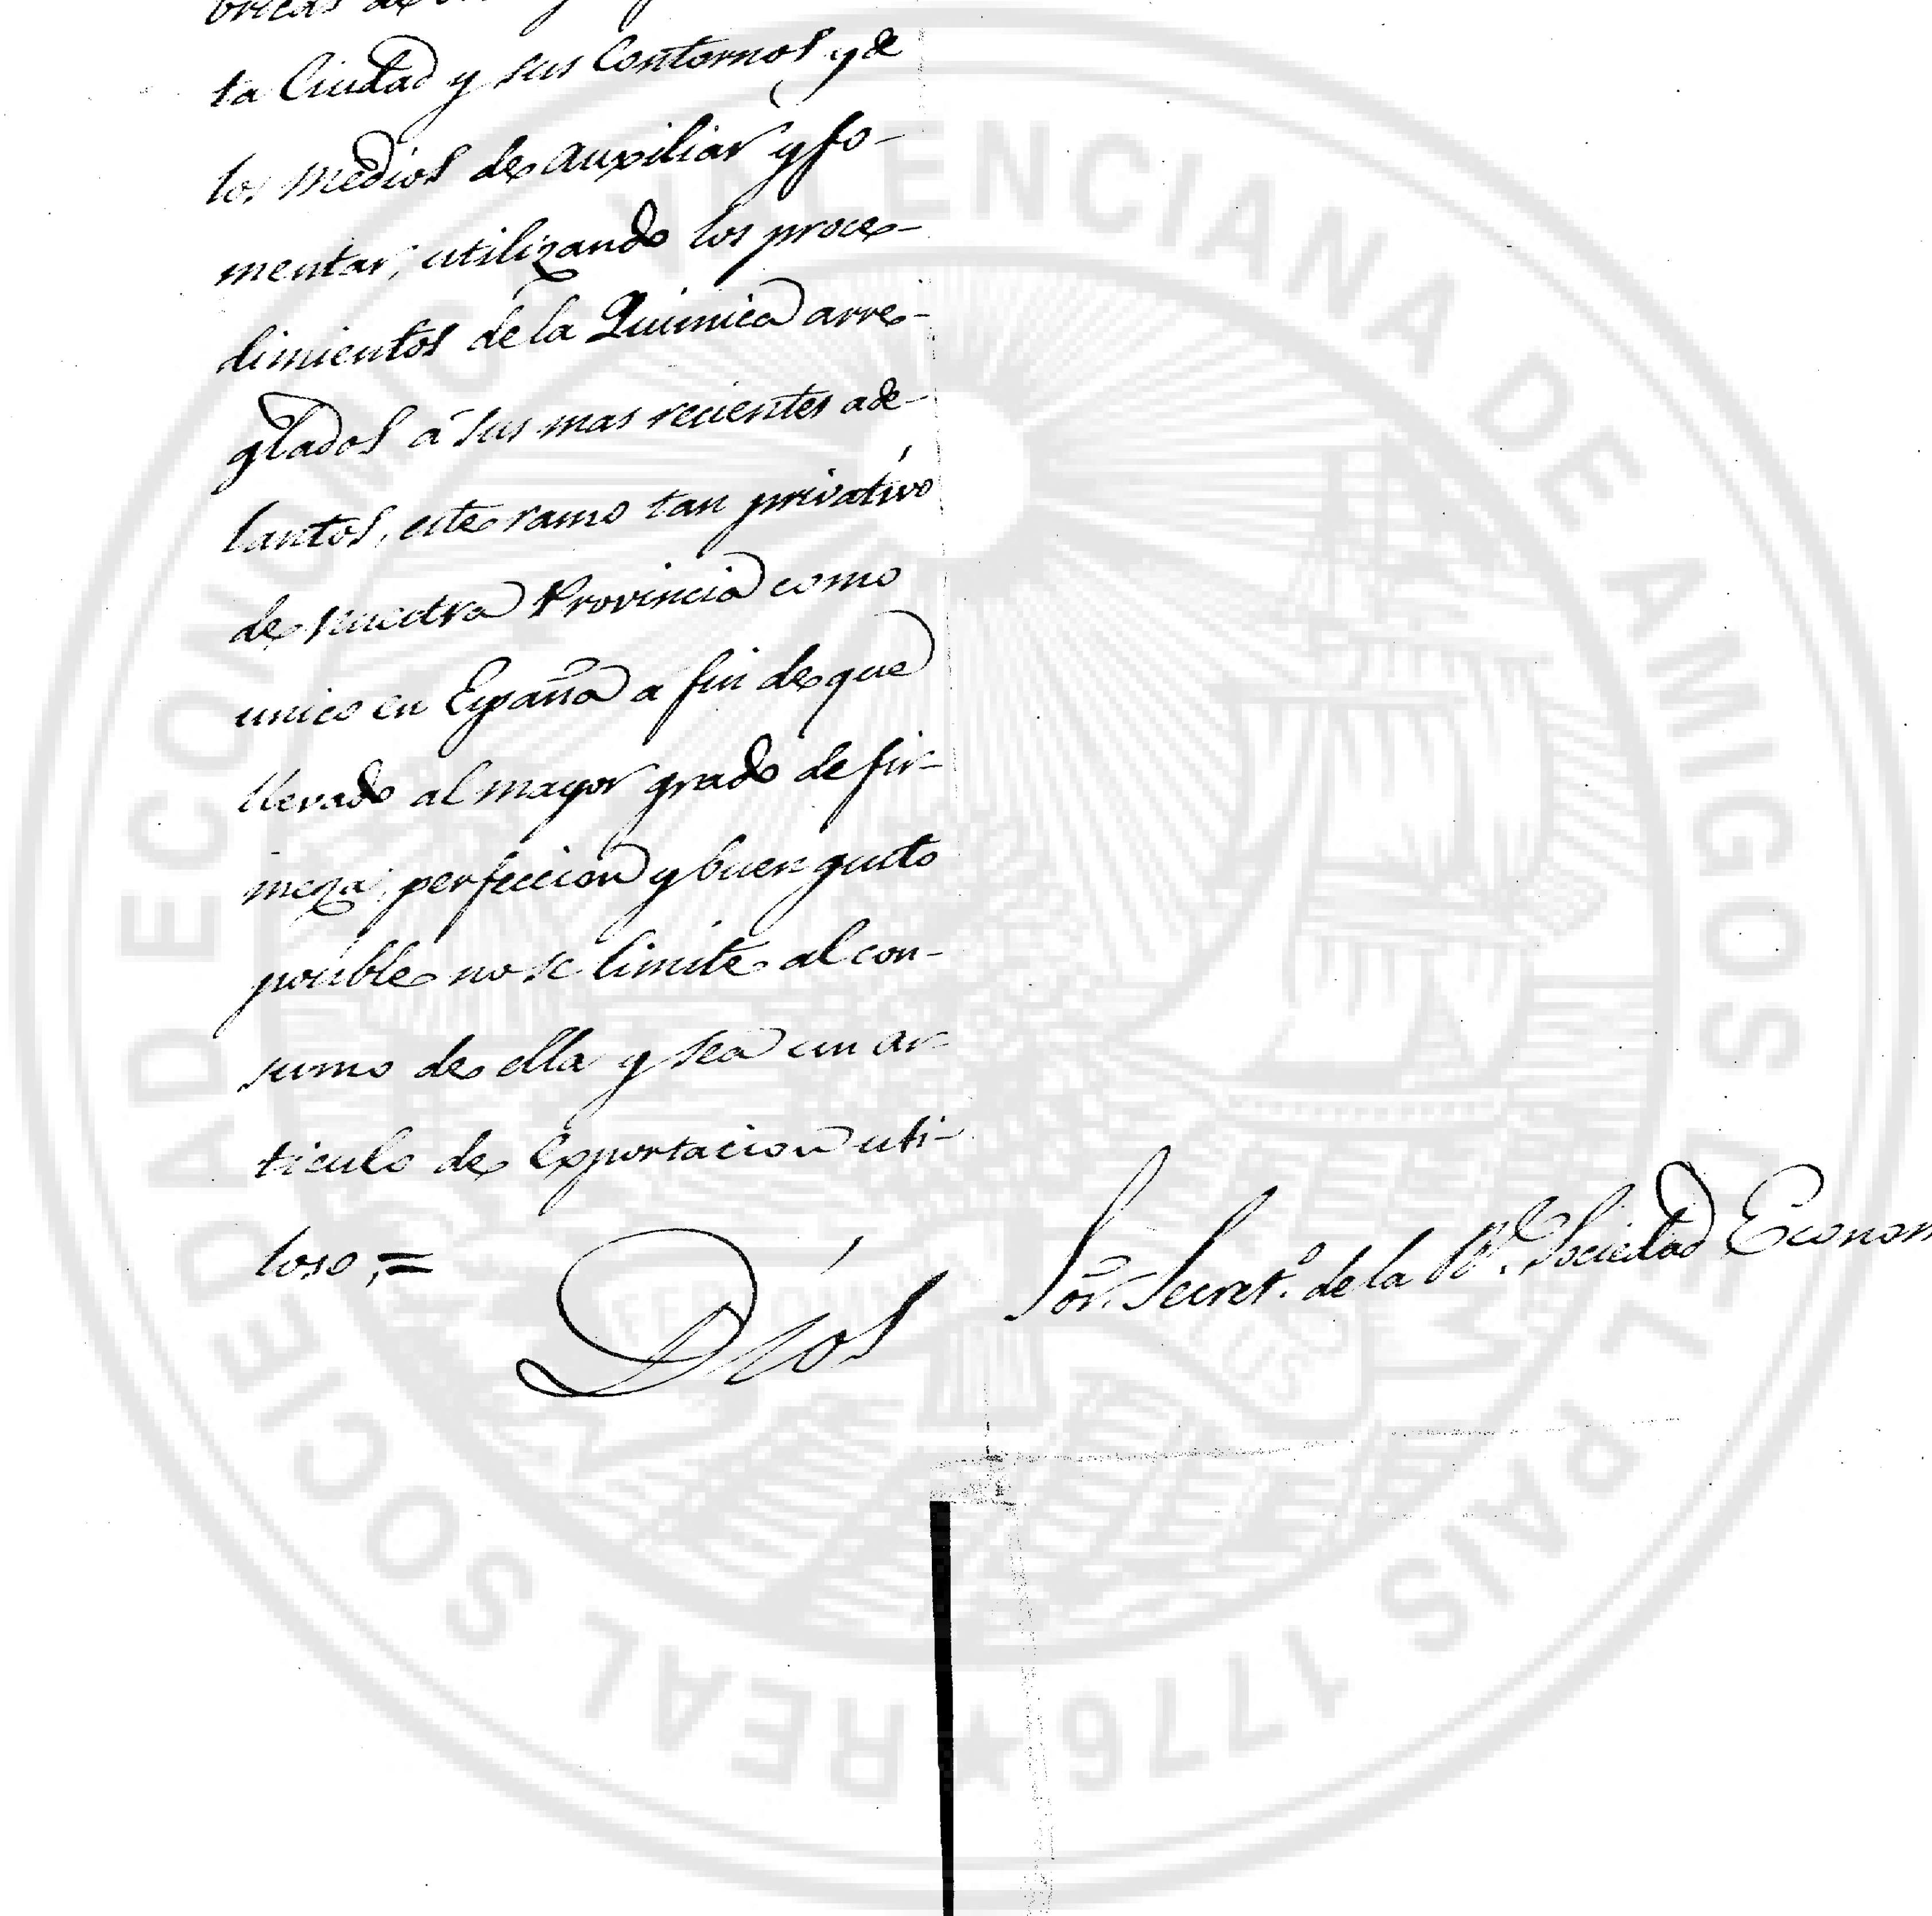 bricas de
ta Ciudad y sus Contornos y de
los medios de auxiliar y fo-
mentar, utilizando los proce-
dimientos de la Quimica arre-
glados á sus mas recientes ade-
lantos, este ramo tan privativo
de nuestra Provincia como
unico en España a fin de que
llevado al mayor grado de fir-
meza, perfeccion y buen gusto
posible no se limite al con-
sumo de ella y sea un ar-
ticulo de exportacion uti-
loso,=
Dios
Sor. Secret.º de la Rl. Sociedad Econom
REAL SOCIEDAD ECONOMICA VALENCIANA DE AMIGOS DEL PAIS 1776